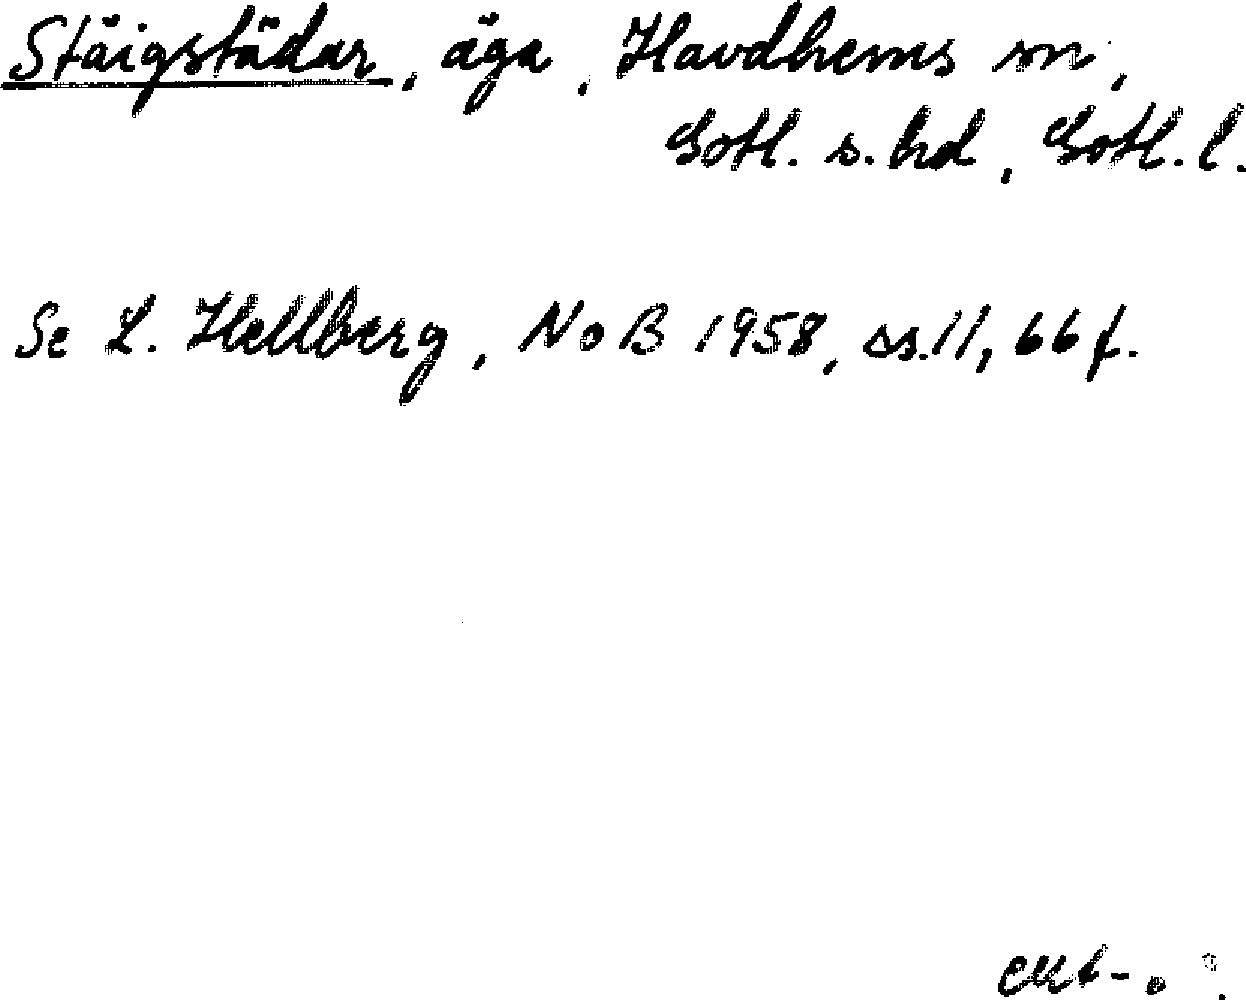 Stäigstädar, äga, Havdhems sn,
Gotl. s. hd, Gotl. l.
Se L. Hellberg, NoB 1958, ss. 11, 66 f.